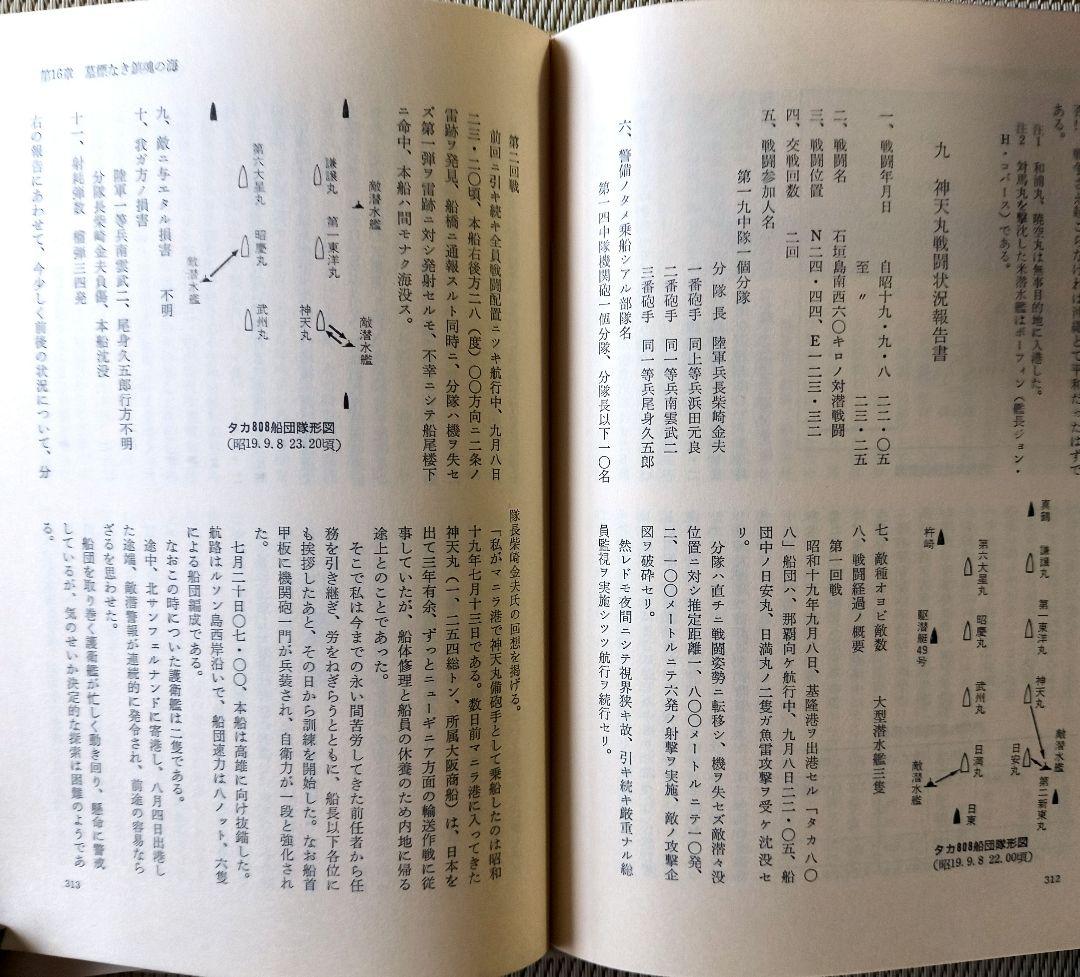 ある。
注1 和浦丸、暁空丸は無事目的地に入港した。
注2 対馬丸を撃沈した米潜水艦はボーフィン（艦長ジョン・
H・コバース）である。
九 神天丸戦闘状況報告書
一、戦闘年月日 自昭十九・九・八 二二・〇五
至 〃 二三・二五
二、戦闘名 石垣島南西六〇キロノ対潜戦闘
三、戦闘位置 N二四・四四、E一二三・三二
四、交戦回数 二回
五、戦闘参加人名
第一九中隊一個分隊
分隊長 陸軍兵長柴崎金夫
一番砲手 同上等兵浜田元良
二番砲手 同一等兵南雲武二
三番砲手 同一等兵尾身久五郎
六、警備ノタメ乗船シアル部隊名
第一四中隊機関砲一個分隊、分隊長以下一〇名
真鶴
謙譲丸
第一東洋丸
神天丸
敵潜水艦
第二新東丸
杵崎
第六大星丸
昭慶丸
駆潜艇49号
武州丸
日満丸
日安丸
敵潜水艦
日東
タカ808船団隊形図
(昭19.9.8 22.00頃)
七、敵種オヨビ敵数 大型潜水艦三隻
八、戦闘経過ノ概要
第一回戦
昭和十九年九月八日、基隆港ヲ出港セル「タカ八〇
八」船団ハ、那覇向ケ航行中、九月八日二二・〇五、船
団中ノ日安丸、日満丸ノ二隻ガ魚雷攻撃ヲ受ケ沈没セ
リ。
分隊ハ直チニ戦闘姿勢ニ転移シ、機ヲ失セズ敵潜々没
位置ニ対シ推定距離一、八〇〇メートルニテ一〇発、
二、一〇〇メートルニテ六発ノ射撃ヲ実施、敵ノ攻撃企
図ヲ破砕セリ。
然レドモ夜間ニシテ視界狭キ故、引キ続キ厳重ナル総
員監視ヲ実施シツツ航行ヲ続行セリ。
312
第16章 墓標なき鎮魂の海
第二回戦
前回ニ引キ続キ全員戦闘配置ニツキ航行中、九月八日
二三・二〇頃、本船右後方二八（度）〇〇方向ニ二条ノ
雷跡ヲ発見、船橋ニ通報スルト同時ニ、分隊ハ機ヲ失セ
ズ第一弾ヲ雷跡ニ対シ発射セルモ、不幸ニシテ船尾楼下
ニ命中、本船ハ間モナク海没ス。
敵潜水艦
謙譲丸
第一東洋丸
神天丸
敵潜水艦
第六大星丸
昭慶丸
敵潜水艦
武州丸
タカ808船団隊形図
(昭19.9.8 23.20頃)
九、敵ニ与エタル損害 不明
十、我ガ方ノ損害
陸軍一等兵南雲武二、尾身久五郎行方不明
分隊長柴崎金夫負傷、本船沈没
十一、射耗弾数 榴弾三四発
右の報告にあわせて、今少しく前後の状況について、分
隊長柴崎金夫氏の回想を掲げる。
「私がマニラ港で神天丸備砲手として乗船したのは昭和
十九年七月十三日である。数日前マニラ港に入ってきた
神天丸（一、二五四総トン、所属大阪商船）は、日本を
出て三年有余、ずっとニューギニア方面の輸送作戦に従
事していたが、船体修理と船員の休養のため内地に帰る
途上とのことであった。
そこで私は今までの永い間苦労してきた前任者から任
務を引き継ぎ、労をねぎらうとともに、船長以下各位に
も挨拶したあと、その日から訓練を開始した。なお船首
甲板に機関砲一門が兵装され、自衛力が一段と強化され
た。
七月二十日〇七・〇〇、本船は高雄に向け抜錨した。
航路はルソン島西岸沿いで、船団速力は八ノット、六隻
による船団編成である。
なおこの時についた護衛艦は二隻である。
途中、北サンフェルナンドに寄港し、八月四日出港し
た途端、敵潜警報が連続的に発令され、前途の容易なら
ざるを思わせた。
船団を取り巻く護衛艦が忙しく動き回り、懸命に警戒
しているが、気のせいか決定的な探索は困難のようであ
る。
313